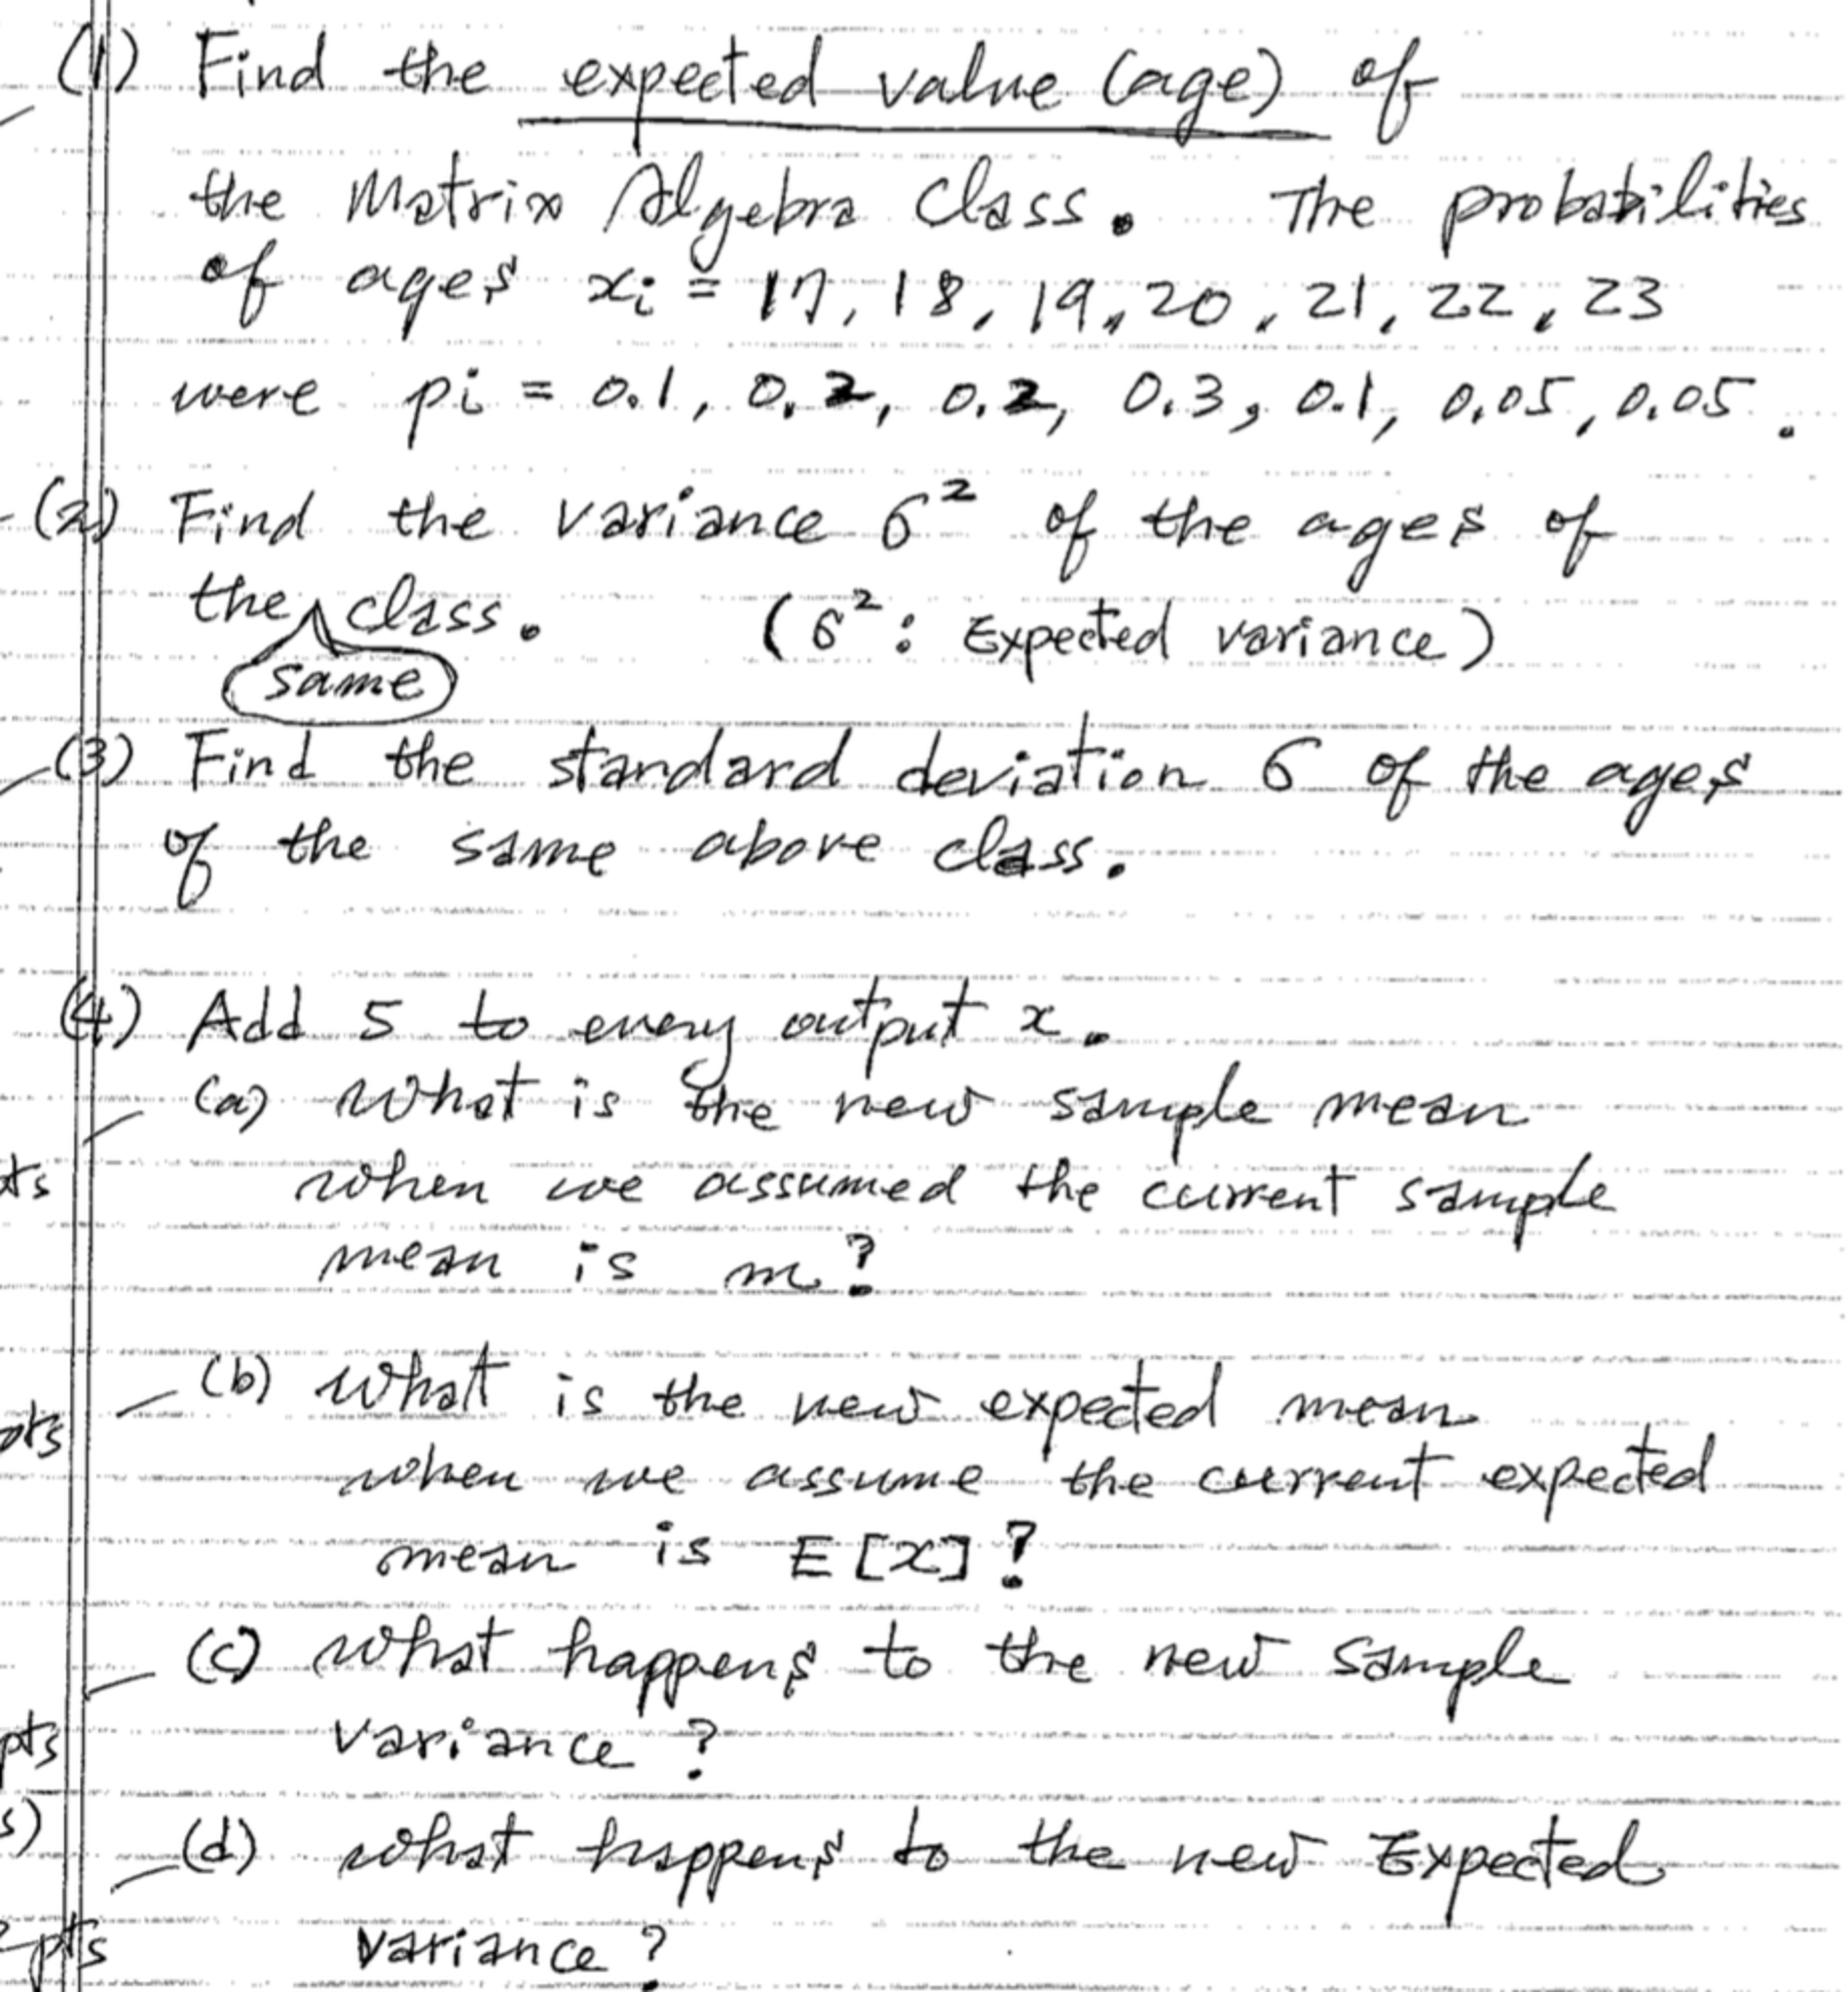 (1) Find the expected value (age) of
the Matrix Algebra Class. The probabilities
of ages xi = 17, 18, 19, 20, 21, 22, 23
were pi = 0.1, 0.2, 0.2, 0.3, 0.1, 0.05, 0.05.
(2) Find the variance σ² of the ages of
the class. (σ²: Expected variance)
same
(3) Find the standard deviation σ of the ages
of the same above class.
(4) Add 5 to every output x.
(a) What is the new sample mean
when we assumed the current sample
mean is m?
(b) What is the new expected mean
when we assume the current expected
mean is E[x]?
(c) What happens to the new sample
variance?
(d) What happens to the new Expected
variance?
pts